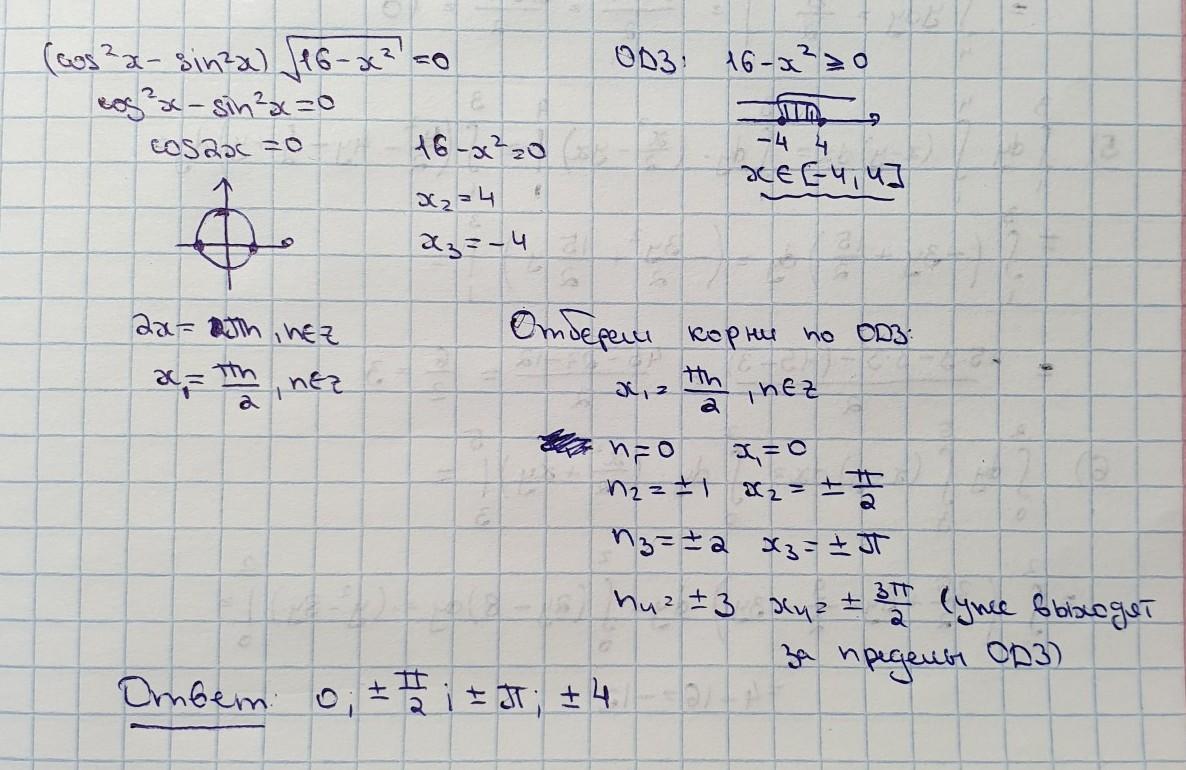 (cos²x - sin²x) √(16-x²) = 0
cos²x - sin²x = 0
cos2x = 0
2x = πn, n∈z
x₁ = πn/2, n∈z
16-x² = 0
x₂ = 4
x₃ = -4
ОДЗ: 16-x² ≥ 0
-4 4
x∈[-4, 4]
Отберем корни по ОДЗ:
x₁ = πn/2, n∈z
n=0 x₁=0
n₂=±1 x₂=±π/2
n₃=±2 x₃=±π
n₄=±3 x₄=±3π/2 (уже выходят
за пределы ОДЗ)
Ответ: 0; ±π/2; ±π; ±4